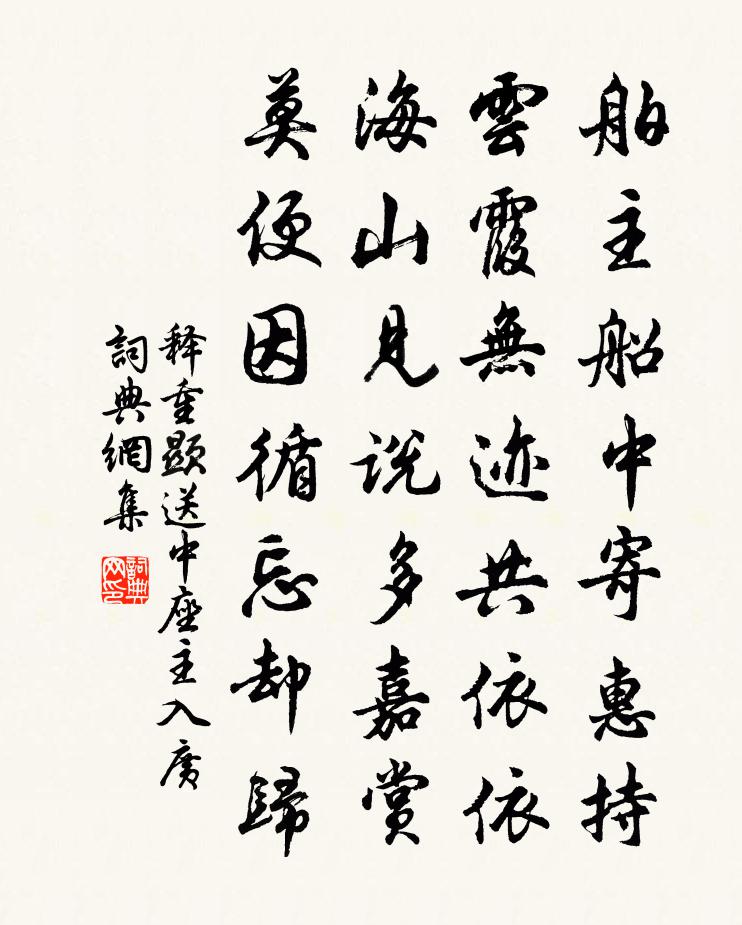 舶主船中寄惠持
雲霞無迹共依依
海山見说多嘉賞
莫便因循忘却歸
释重顕送中座主入廣
詞典網集
詞典網印